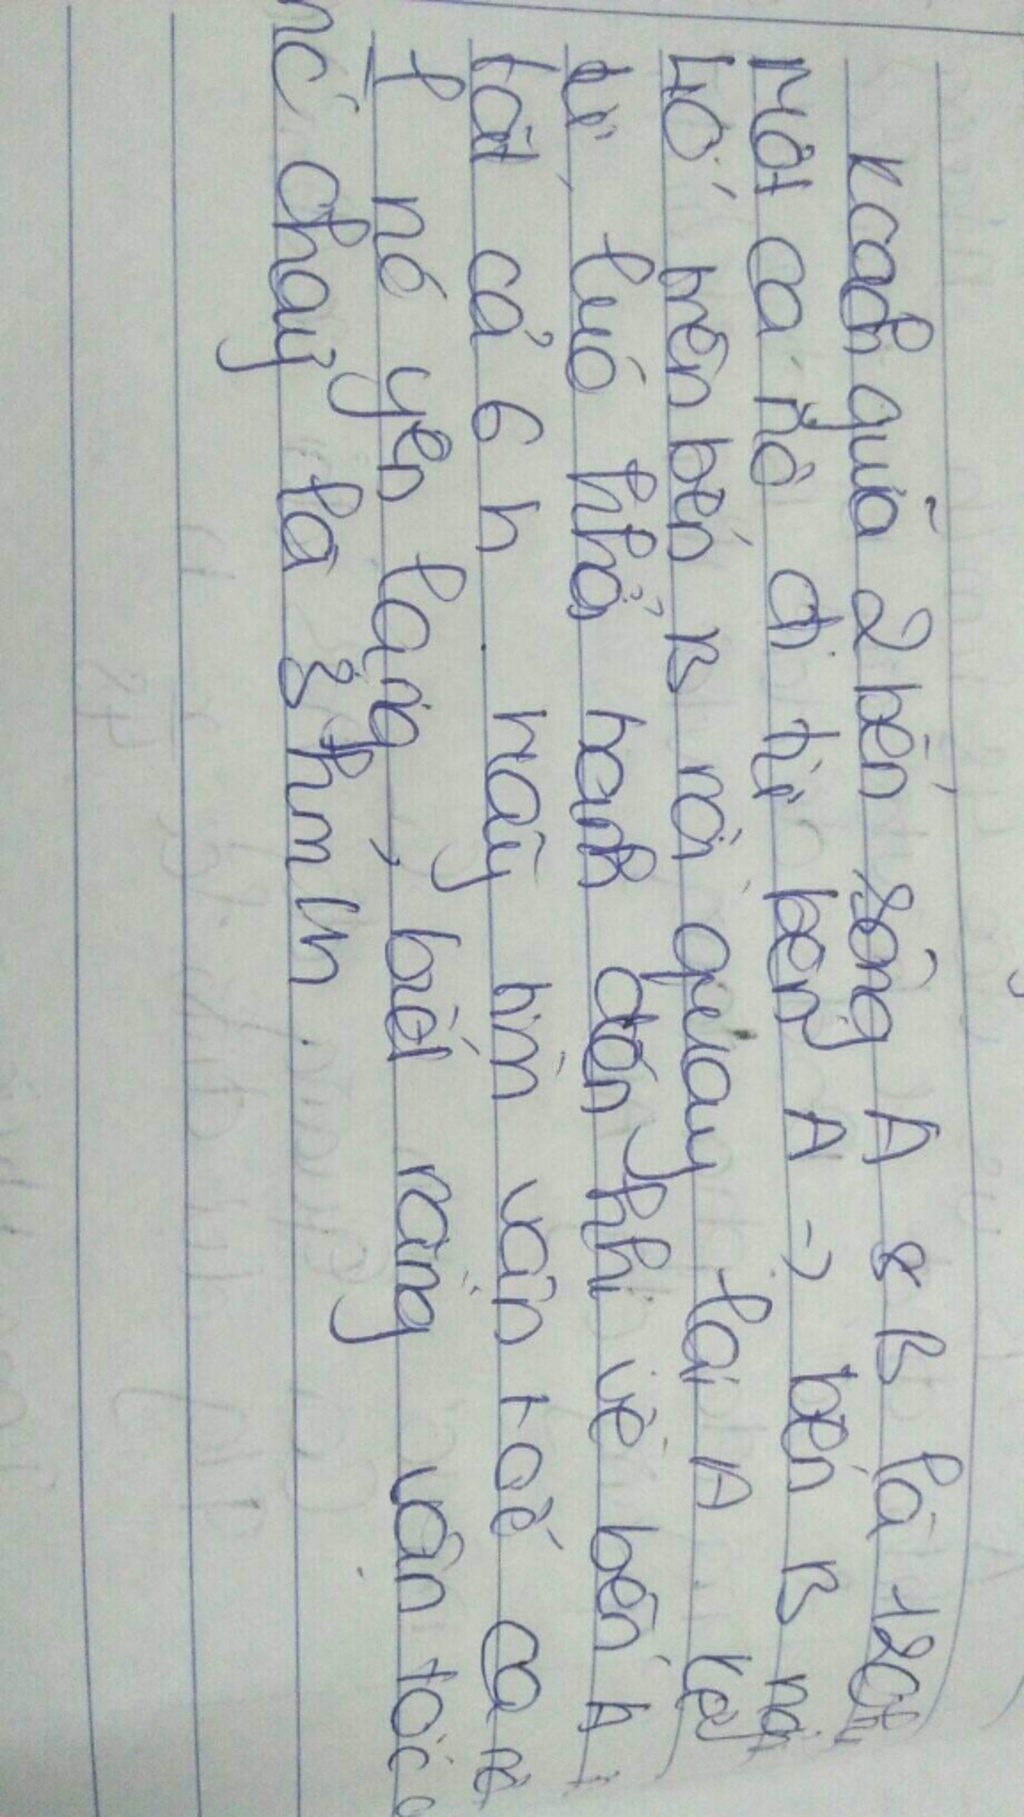 Kcách giữa 2 bến sông A & B là 120k
Một ca nô đi từ bến A → bến B n
40' trên bến B rồi quay lại A. Kể
từ lúc khởi hành đến khi về bến A
tất cả 6 h. Hãy tìm vận tốc ca n
nó yên lặng, biết rằng vận tốc
nc' chảy là 3 km/h.